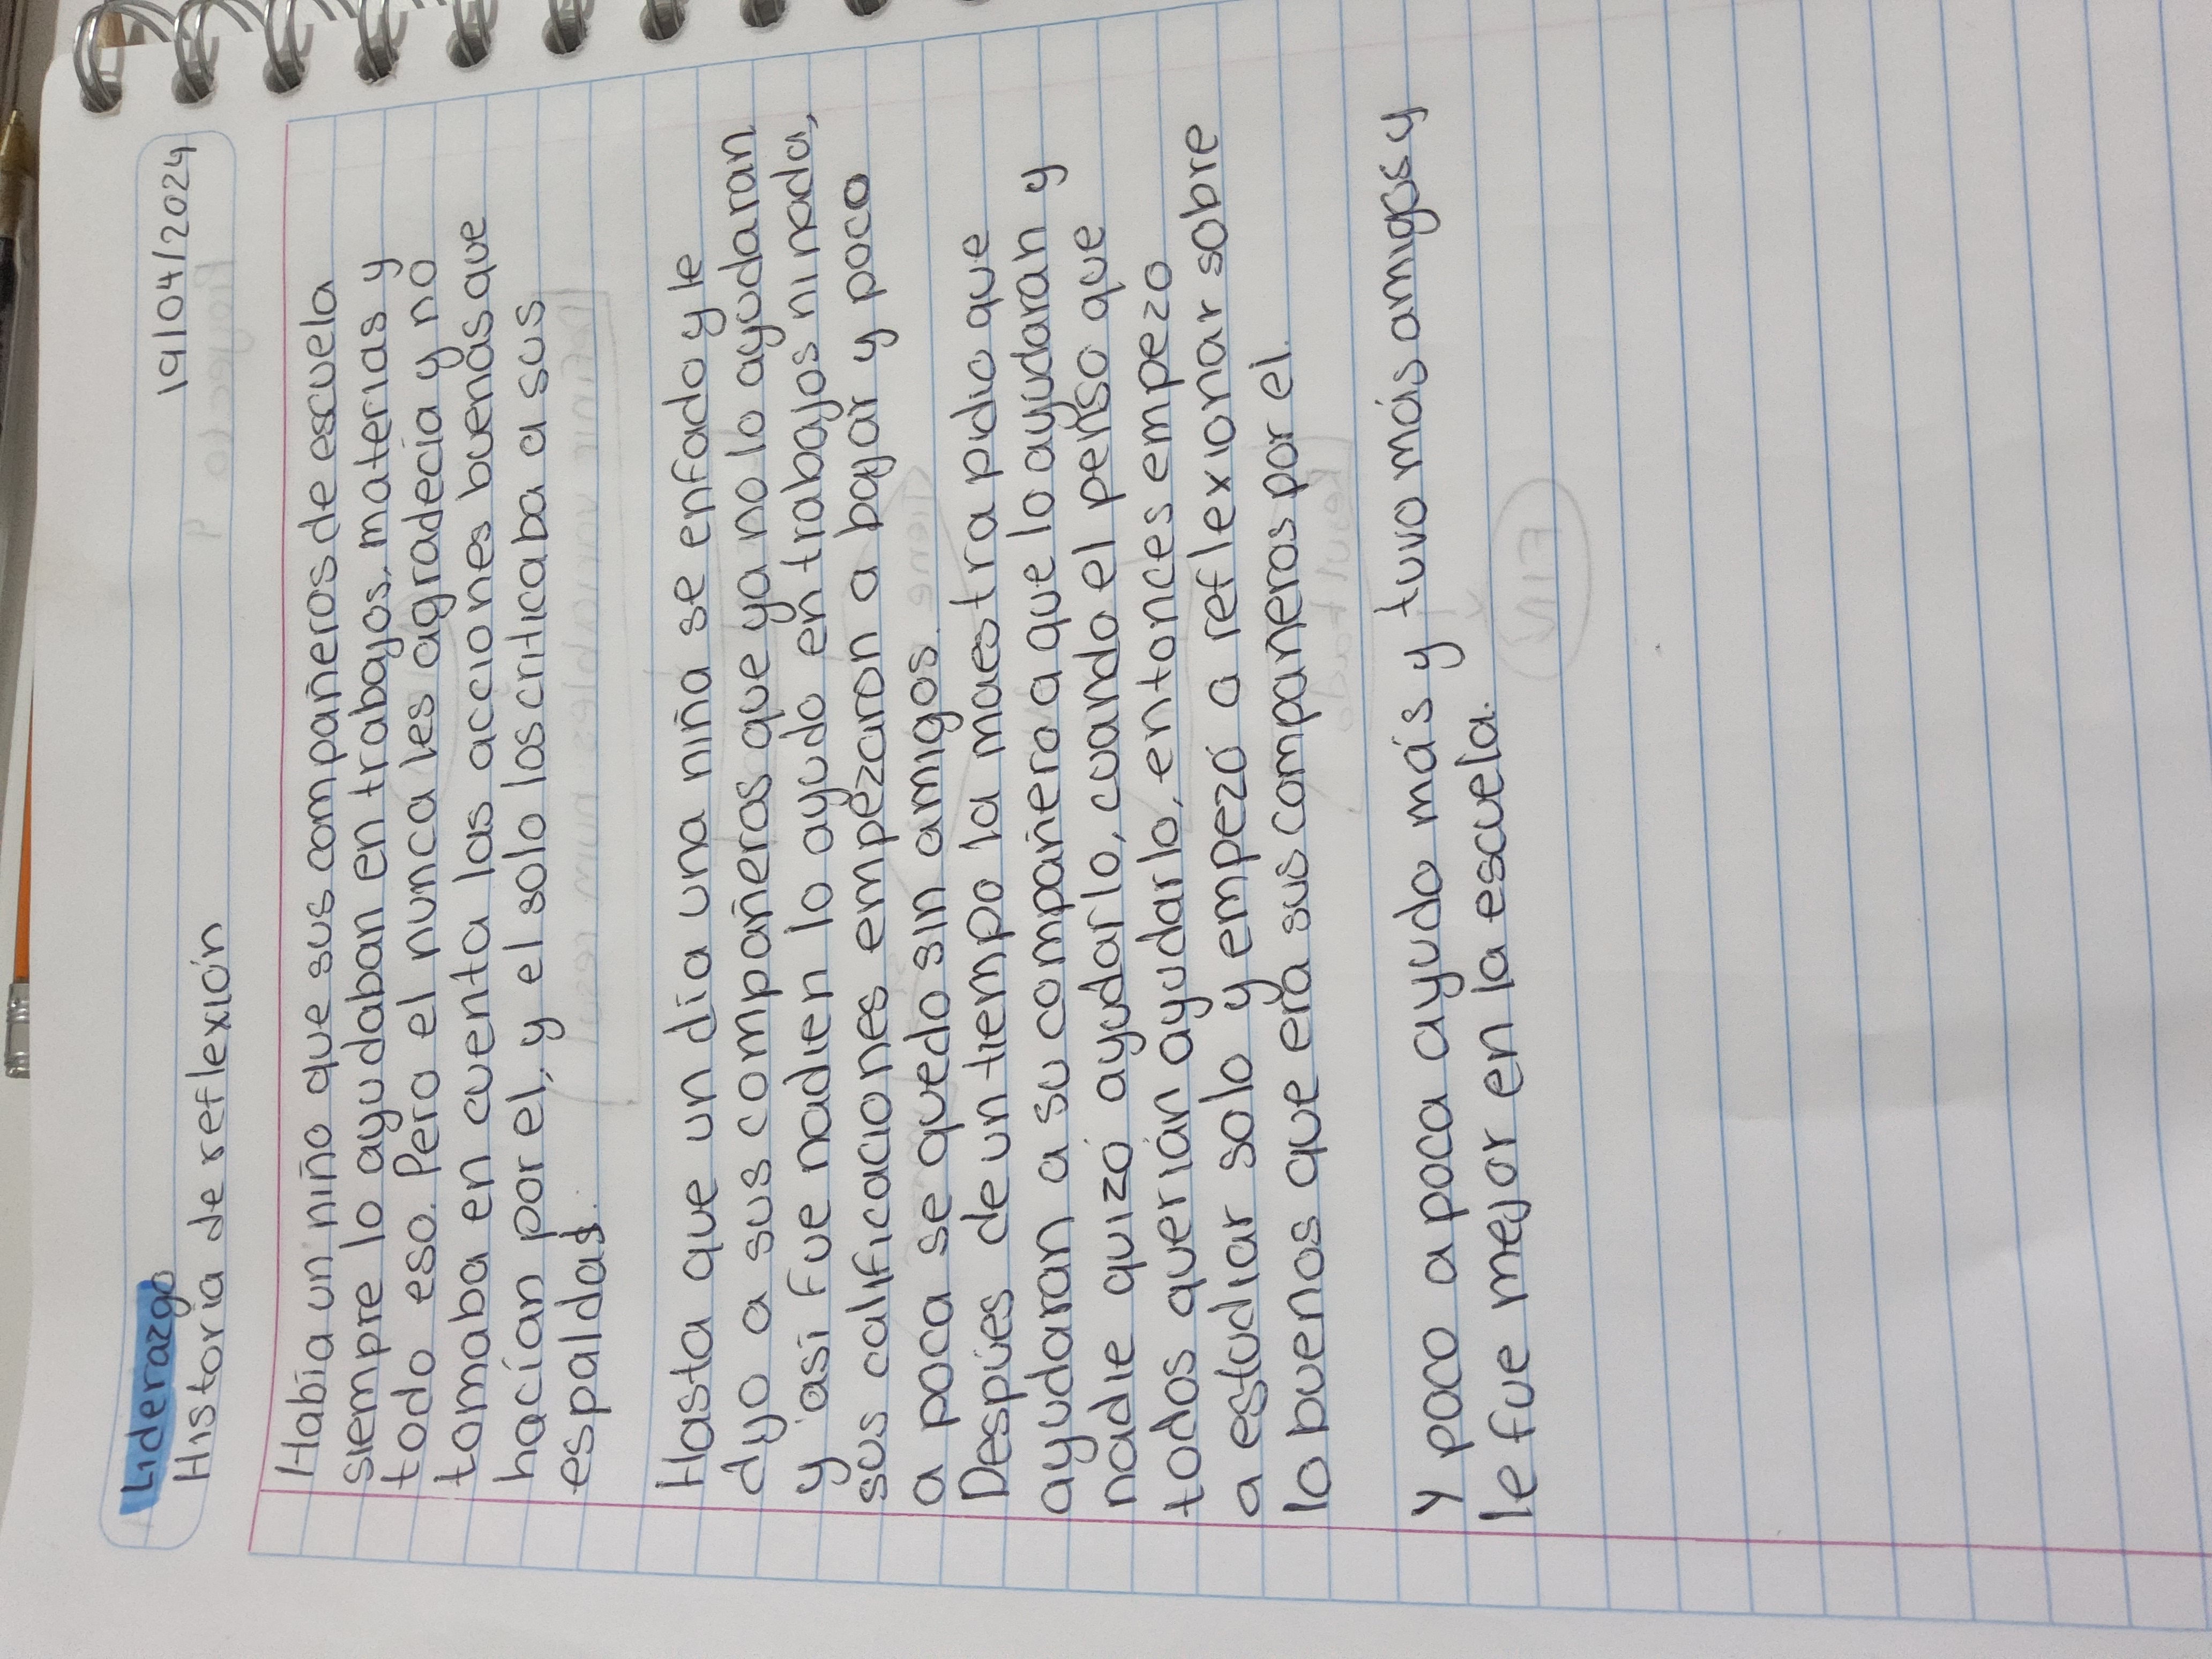 Liderazgo 19/04/2024
Historia de reflexión
Había un niño que sus compañeros de escuela
siempre lo ayudaban en trabajos, materias y
todo eso. Pero el nunca les agradecía y no
tomaba en cuenta las acciones buenas que
hacían por el, y el solo los criticaba a sus
espaldas.
Hasta que un día una niña se enfado y le
dijo a sus compañeros que ya no lo ayudaran
y así fue nadien lo ayudo en trabajos ni nada,
sus calificaciones empezaron a bajar y poco
a poco se quedo sin amigos.
Despúes de un tiempo la maestra pidio que
ayudaran a su compañero a que lo ayudaran y
nadie quizó ayudarlo, cuando el penso que
todos querían ayudarlo, entonces empezo
a estudiar solo y empezó a reflexionar sobre
lo buenos que era sus compañeros por el.
Y poco a poco ayudo más y tuvo más amigos y
le fue mejor en la escuela.